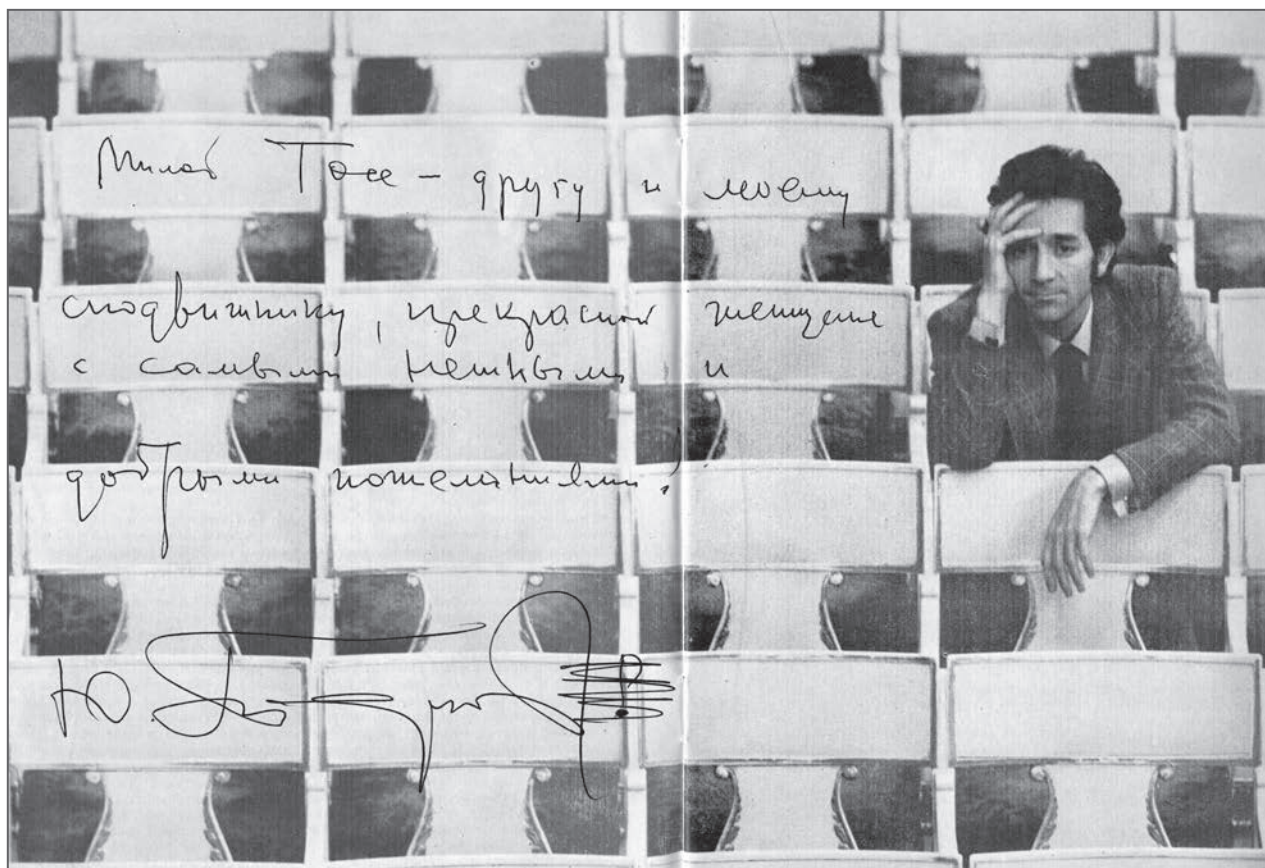 Милой Тосе – другу и моему
сподвижнику, прекрасной женщине
с самыми нежными и
добрыми пожеланиями!
Ю